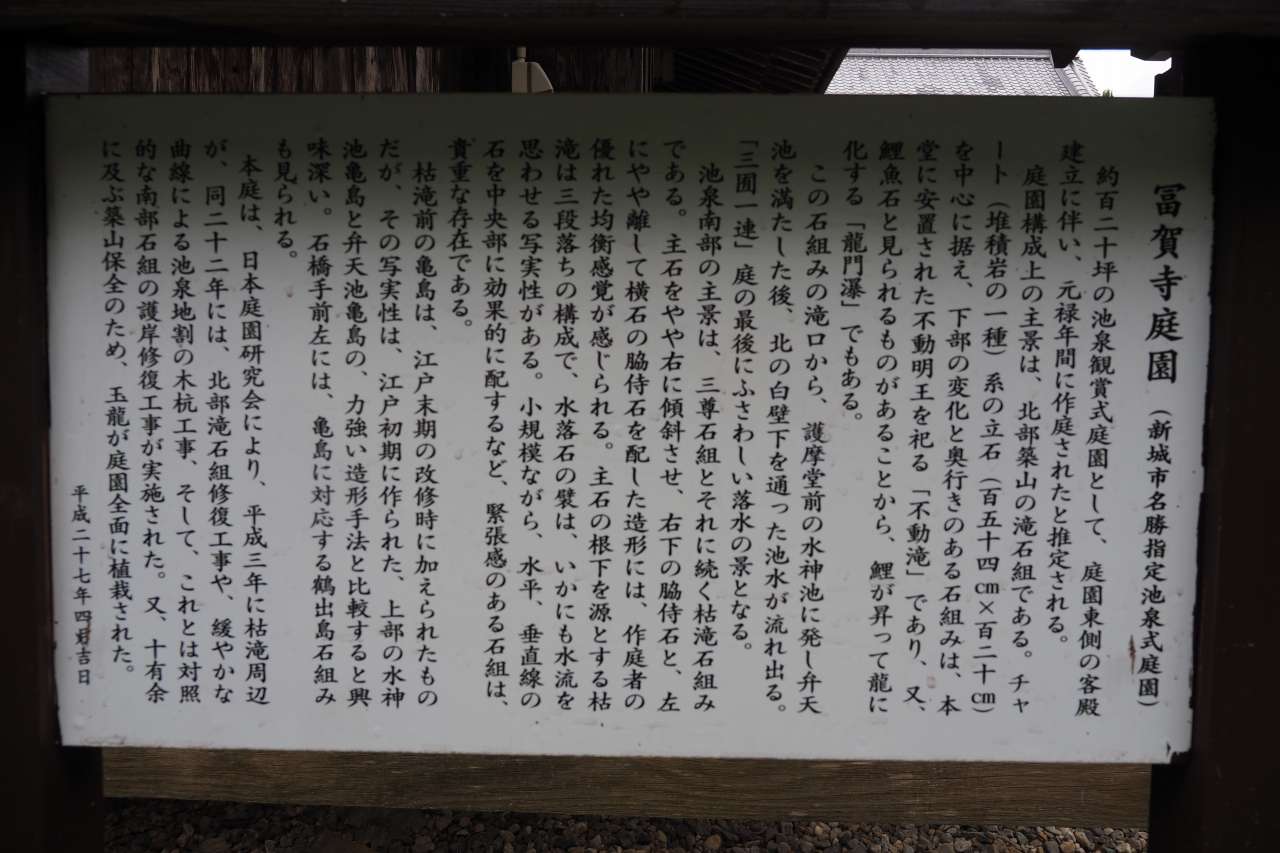 冨賀寺庭園（新城市名勝指定池泉式庭園）
約百二十坪の池泉観賞式庭園として、庭園東側の客殿
建立に伴い、元禄年間に作庭されたと推定される。
庭園構成上の主景は、北部築山の滝石組である。チャ
ート（堆積岩の一種）系の立石（百五十四㎝×百二十㎝）
を中心に据え、下部の変化と奥行きのある石組みは、本
堂に安置された不動明王を祀る「不動滝」であり、又、
鯉魚石と見られるものがあることから、鯉が昇って龍に
化する「龍門瀑」でもある。
この石組みの滝口から、護摩堂前の水神池に発し弁天
池を満たした後、北の白壁下を通った池水が流れ出る。
「三囿一連」庭の最後にふさわしい落水の景となる。
池泉南部の主景は、三尊石組とそれに続く枯滝石組み
である。主石をやや右に傾斜させ、右下の脇侍石と、左
にやや離して横石の脇侍石を配した造形には、作庭者の
優れた均衡感覚が感じられる。主石の根下を源とする枯
滝は三段落ちの構成で、水落石の襞は、いかにも水流を
思わせる写実性がある。小規模ながら、水平、垂直線の
石を中央部に効果的に配するなど、緊張感のある石組は、
貴重な存在である。
枯滝前の亀島は、江戸末期の改修時に加えられたもの
だが、その写実性は、江戸初期に作られた、上部の水神
池亀島と弁天池亀島の、力強い造形手法と比較すると興
味深い。石橋手前左には、亀島に対応する鶴出島石組み
も見られる。
本庭は、日本庭園研究会により、平成三年に枯滝周辺
が、同二十二年には、北部滝石組修復工事や、緩やかな
曲線による池泉地割の木杭工事、そして、これとは対照
的な南部石組の護岸修復工事が実施された。又、十有余
に及ぶ築山保全のため、玉龍が庭園全面に植栽された。
平成二十七年四月吉日